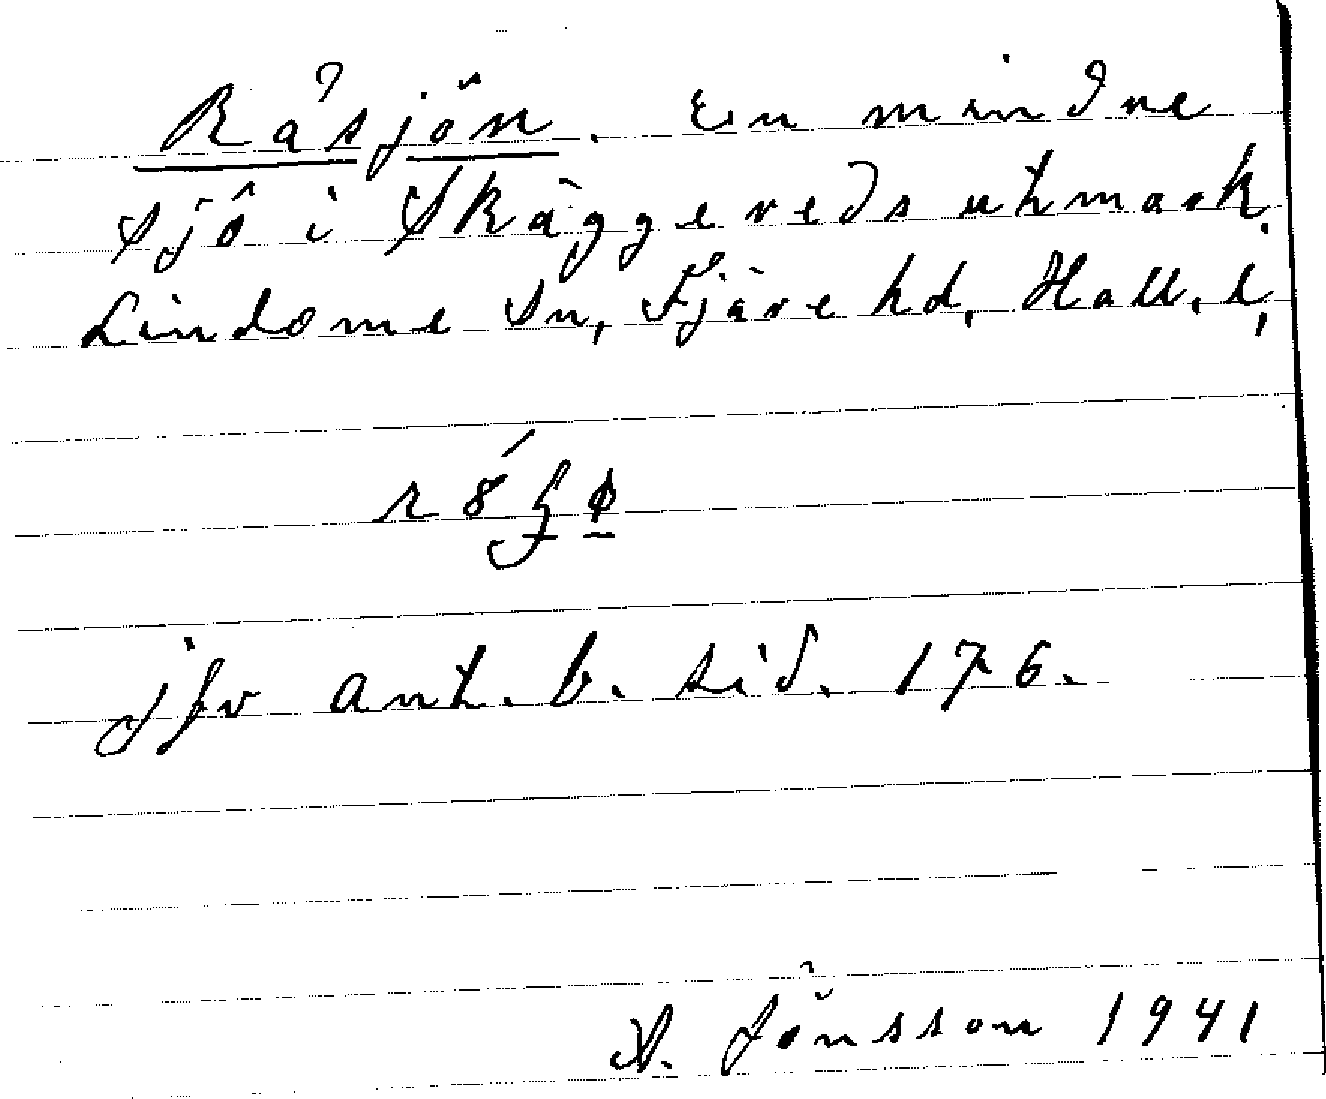 Råsjön. En mindre
sjö i Skäggereds utmark.
Lindome Sn, Fjäre hd, Hall. l,
jfv ant. b. sid. 176.
A. Jönsson 1941